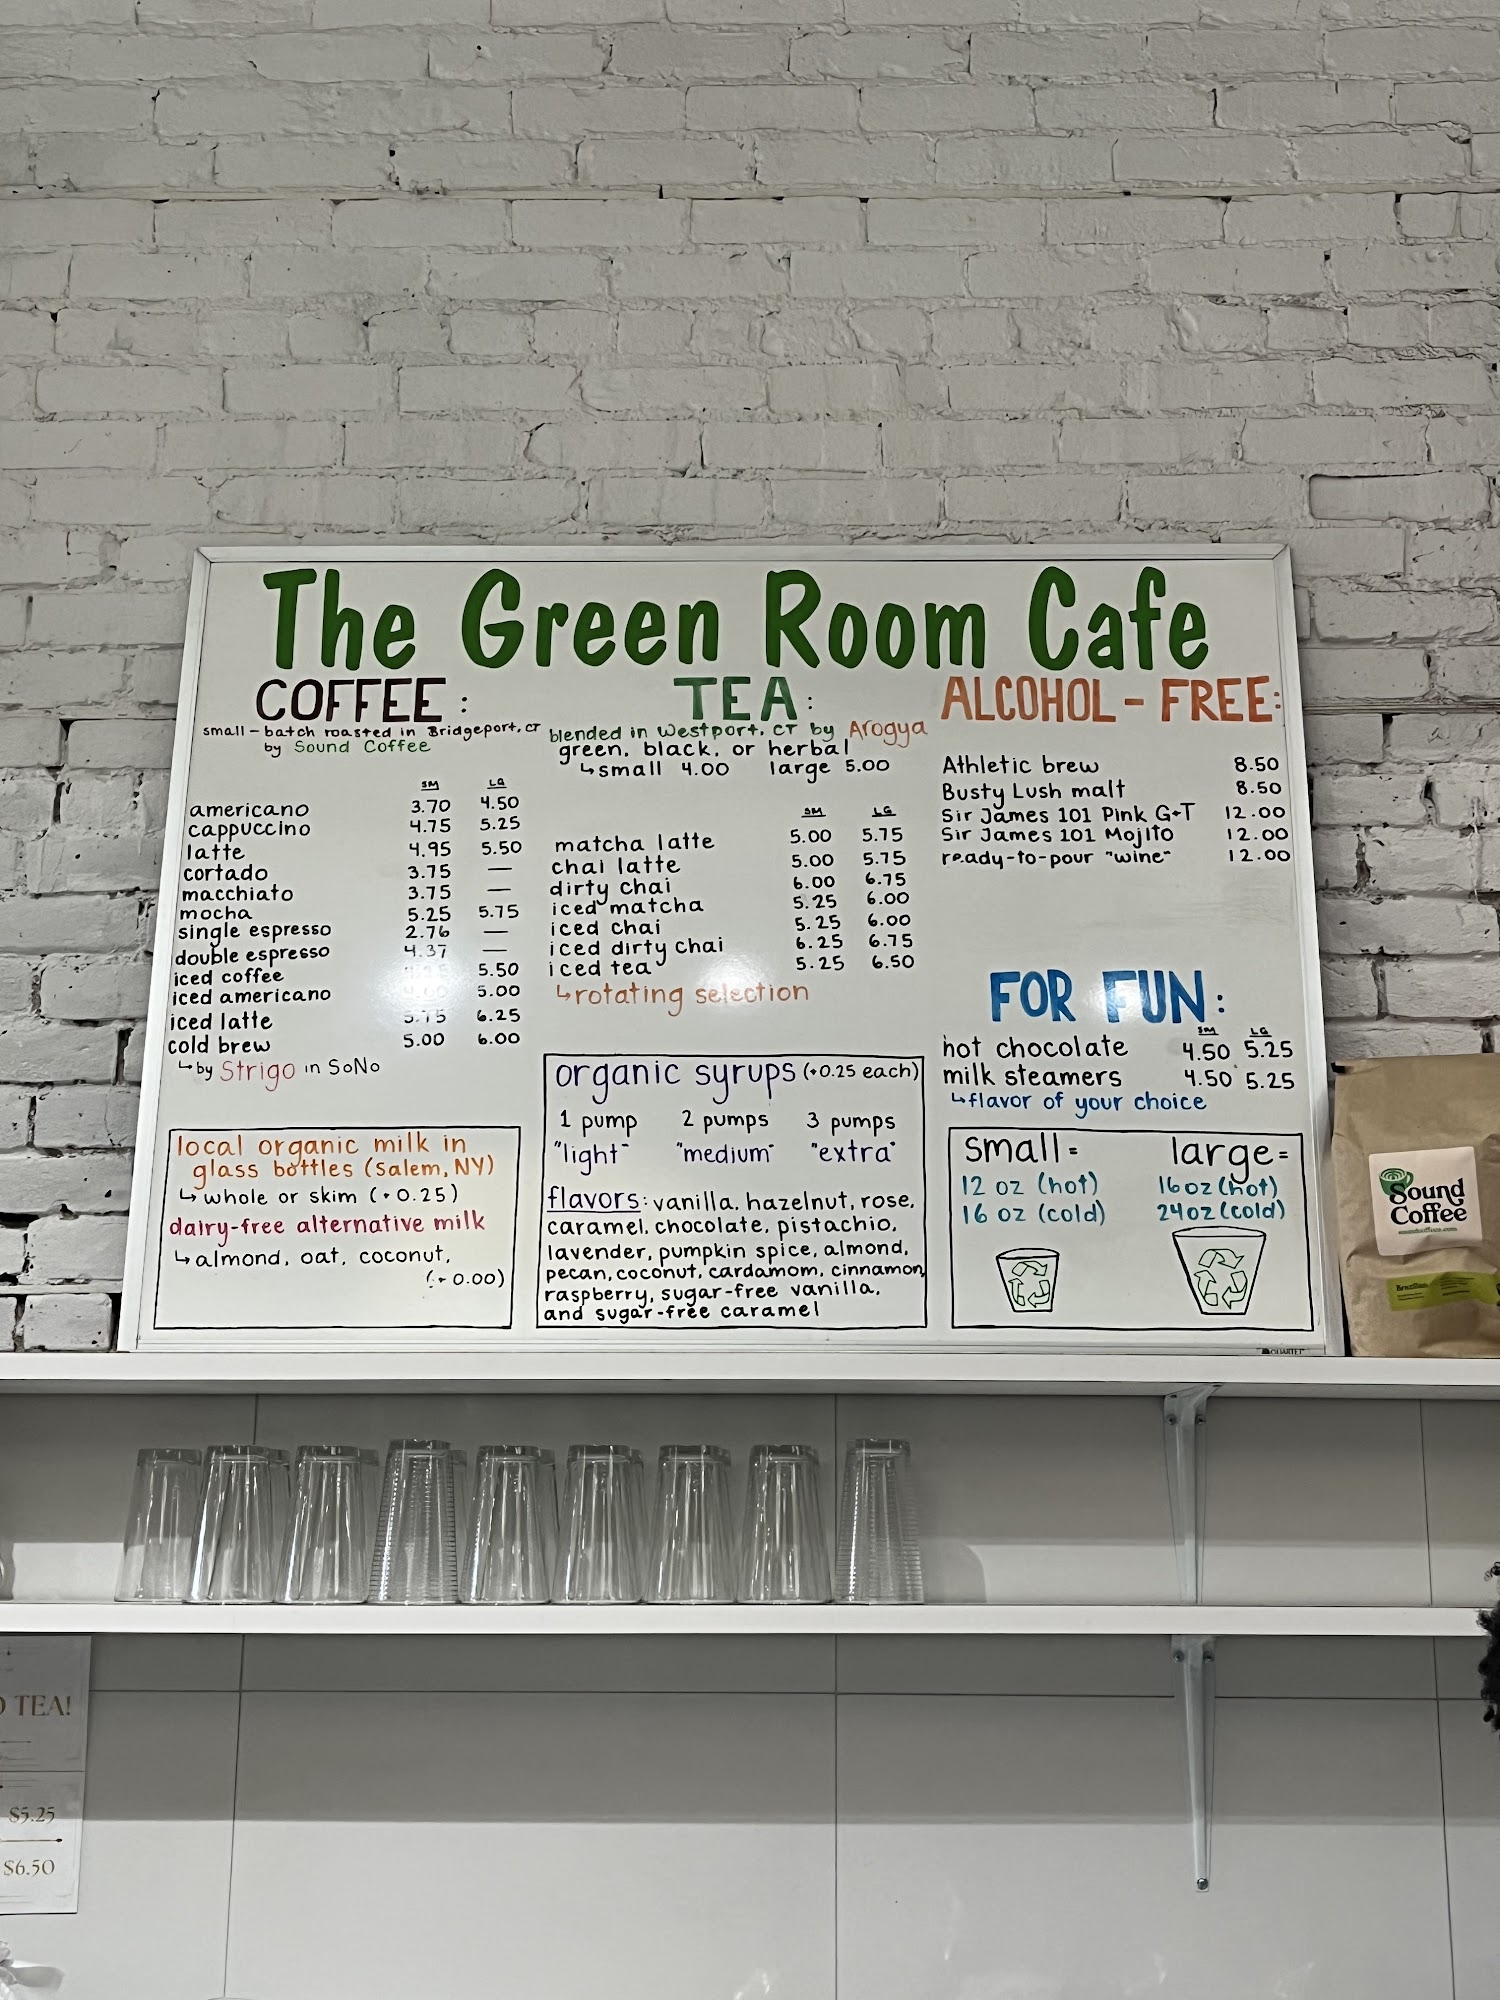 The Green Room Cafe
COFFEE:
small-batch roasted in Bridgeport, CT
by Sound Coffee
SM LG
americano 3.70 4.50
cappuccino 4.75 5.25
latte 4.95 5.50
cortado 3.75 —
macchiato 3.75 —
mocha 5.25 5.75
single espresso 2.76 —
double espresso 4.37 —
iced coffee 5.50
iced americano 5.00
iced latte 5.75 6.25
cold brew 5.00 6.00
↳by Strigo in SoNo
local organic milk in
glass bottles (Salem, NY)
↳whole or skim (+0.25)
dairy-free alternative milk
↳almond, oat, coconut,
(+0.00)
TEA:
blended in Westport, CT by Arogya
green, black, or herbal
↳small 4.00 large 5.00
SM LG
matcha latte 5.00 5.75
chai latte 5.00 5.75
dirty chai 6.00 6.75
iced matcha 5.25 6.00
iced chai 5.25 6.00
iced dirty chai 6.25 6.75
iced tea 5.25 6.50
↳rotating selection
organic syrups (+0.25 each)
1 pump 2 pumps 3 pumps
"light" "medium" "extra"
flavors: vanilla, hazelnut, rose,
caramel, chocolate, pistachio,
lavender, pumpkin spice, almond,
pecan, coconut, cardamom, cinnamon,
raspberry, sugar-free vanilla,
and sugar-free caramel
ALCOHOL-FREE:
Athletic brew 8.50
Busty Lush malt 8.50
Sir James 101 Pink G+T 12.00
Sir James 101 Mojito 12.00
ready-to-pour "wine" 12.00
FOR FUN:
SM LG
hot chocolate 4.50 5.25
milk steamers 4.50 5.25
↳flavor of your choice
small= large=
12 oz (hot) 16oz (hot)
16 oz (cold) 24oz (cold)
QUARTET
Sound
Coffee
TEA!
$5.25
$6.50